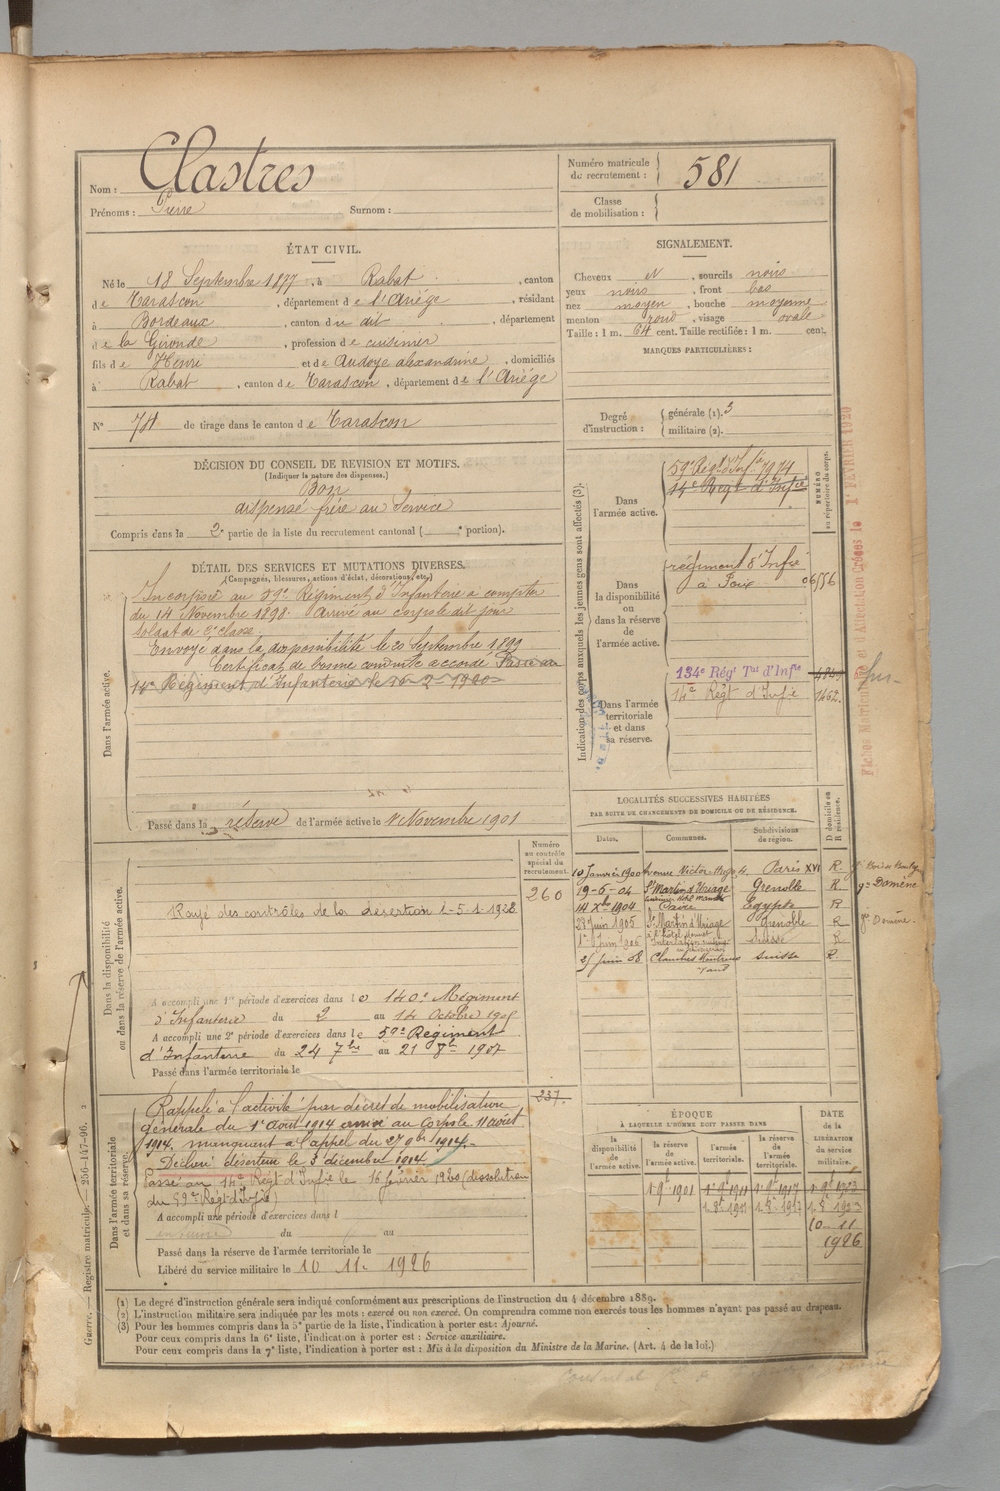 Nom : Clastres
Prénoms : Pierre Surnom :
Numéro matricule du recrutement : 581
Classe de mobilisation :
ÉTAT CIVIL.
Né le 18 Septembre 1877, à Rabat, canton
de Tarascon, département de l'Ariége, résidant
à Bordeaux, canton du dit, département
de la Gironde, profession de cuisinier
fils de Henri et de Audoye alexandrine, domiciliés
à Rabat, canton de Tarascon, département de l'Ariége
N° 74 de tirage dans le canton de Tarascon
SIGNALEMENT.
Cheveux N, sourcils noirs
yeux noirs, front bas
nez moyen, bouche moyenne
menton rond, visage ovale
Taille : 1 m. 64 cent. Taille rectifiée : 1 m. cent.
MARQUES PARTICULIÈRES :
Degré d'instruction : générale (1). 3
militaire (2).
DÉCISION DU CONSEIL DE REVISION ET MOTIFS.
(Indiquer la nature des dispenses.)
Bon
dispensé frère au Service
Compris dans la 2e partie de la liste du recrutement cantonal ( e portion).
DÉTAIL DES SERVICES ET MUTATIONS DIVERSES.
(Campagnes, blessures, actions d'éclat, décorations, etc.)
Dans l'armée active.
Incorporé au 59e Régiment d'Infanterie à compter
du 14 Novembre 1898. Arrivé au corps le dit jour
soldat de 2e classe.
Envoyé dans la disponibilité le 20 Septembre 1899
Certificat de bonne conduite accordé Passé au
14e Régiment d'Infanterie le 16-2-1920
Passé dans la réserve de l'armée active le 1 Novembre 1901
Indication des corps auxquels les jeunes gens sont affectés (3).
NUMÉRO au répertoire du corps.
Dans l'armée active.
59e Régt d'Infie 7974
14e Régt d'Infie
Dans la disponibilité ou dans la réserve de l'armée active.
régiment d'Infie
à Foix 06556
Dans l'armée territoriale et dans sa réserve.
134e Régt Tal d'Infie
14e Régt d'Infie 1462.
Fiches Matricule et Affectation Créées le 1er FÉVRIER 1920
LOCALITÉS SUCCESSIVES HABITÉES
PAR SUITE DE CHANGEMENTS DE DOMICILE OU DE RÉSIDENCE.
Dates. Communes. Subdivisions de région. D domicile ou R résidence.
10 Janvier 1900 Avenue Victor Hugo 4. Paris XVI R
19-6-04 St Martin d'Uriage Grenoble R gie Domène
14 Xbre 1904 Caire Egypte R
28 Juin 1905 St Martin d'Uriage Grenoble R gie Domène
1er Juin 1906 Interlaken Suisse R
25 Juin 08 Clarens Montreux Vaud Suisse R.
Numéro au contrôle spécial du recrutement.
260
Dans la disponibilité ou dans la réserve de l'armée active.
Rayé des contrôles de la désertion le 5-1-1928
A accompli une 1re période d'exercices dans le 140e Régiment
d'Infanterie du 2 au 14 Octobre 1905
A accompli une 2e période d'exercices dans le 59e Régiment
d'Infanterie du 24 7bre au 21 8bre 1907
Passé dans l'armée territoriale le
237.
Dans l'armée territoriale et dans sa réserve.
Rappelé à l'activité par décret de mobilisation
générale du 1er Août 1914 arrivé au Corps le 11 août
1914. manquant à l'appel du 27 9bre 1914.
Déclaré déserteur le 3 décembre 1914
Passé au 14e Régt d'Infie le 16 février 1920 (dissolution
du 59e Régt d'Infie)
A accompli une période d'exercices dans l
du au
Passé dans la réserve de l'armée territoriale le
Libéré du service militaire le 10 11. 1926
ÉPOQUE À LAQUELLE L'HOMME DOIT PASSER DANS
la disponibilité de l'armée active. la réserve de l'armée active. l'armée territoriale. la réserve de l'armée territoriale. DATE de la LIBÉRATION du service militaire.
1er 9bre 1901 1er 9bre 1911 1er 9bre 1917 1er 9bre 1923
10-11
1926
(1) Le degré d'instruction générale sera indiqué conformément aux prescriptions de l'instruction du 4 décembre 1889.
(2) L'instruction militaire sera indiquée par les mots : exercé ou non exercé. On comprendra comme non exercés tous les hommes n'ayant pas passé au drapeau.
(3) Pour les hommes compris dans la 5e partie de la liste, l'indication à porter est : Ajourné.
Pour ceux compris dans la 6e liste, l'indication à porter est : Service auxiliaire.
Pour ceux compris dans la 7e liste, l'indication à porter est : Mis à la disposition du Ministre de la Marine. (Art. 4 de la loi.)
Guerre. — Registre matricule. — 256-147-96.